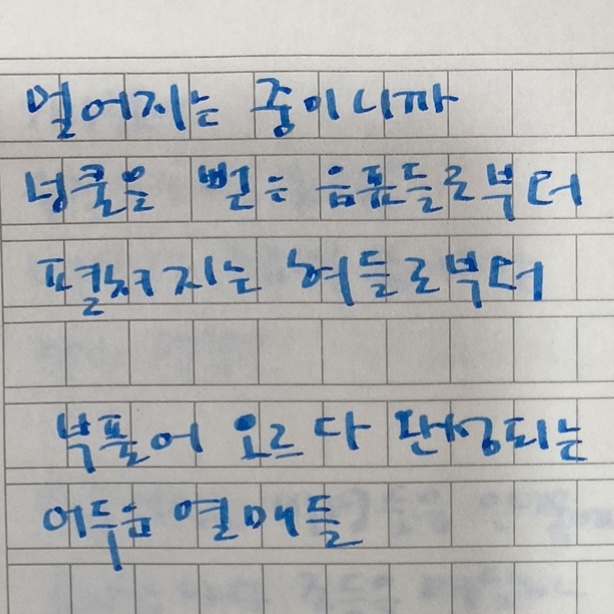 멀어지는 중이니까
넝쿨을 뻗는 음표들로부터
펼쳐지는 혀들로부터
부풀어 오르다 완성되는
어두운 열매들